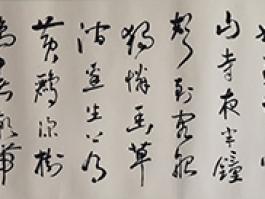 山寺夜半鐘
聲到客船
獨憐幽草
澗邊生上有
黃鸝深樹
鳴春潮帶